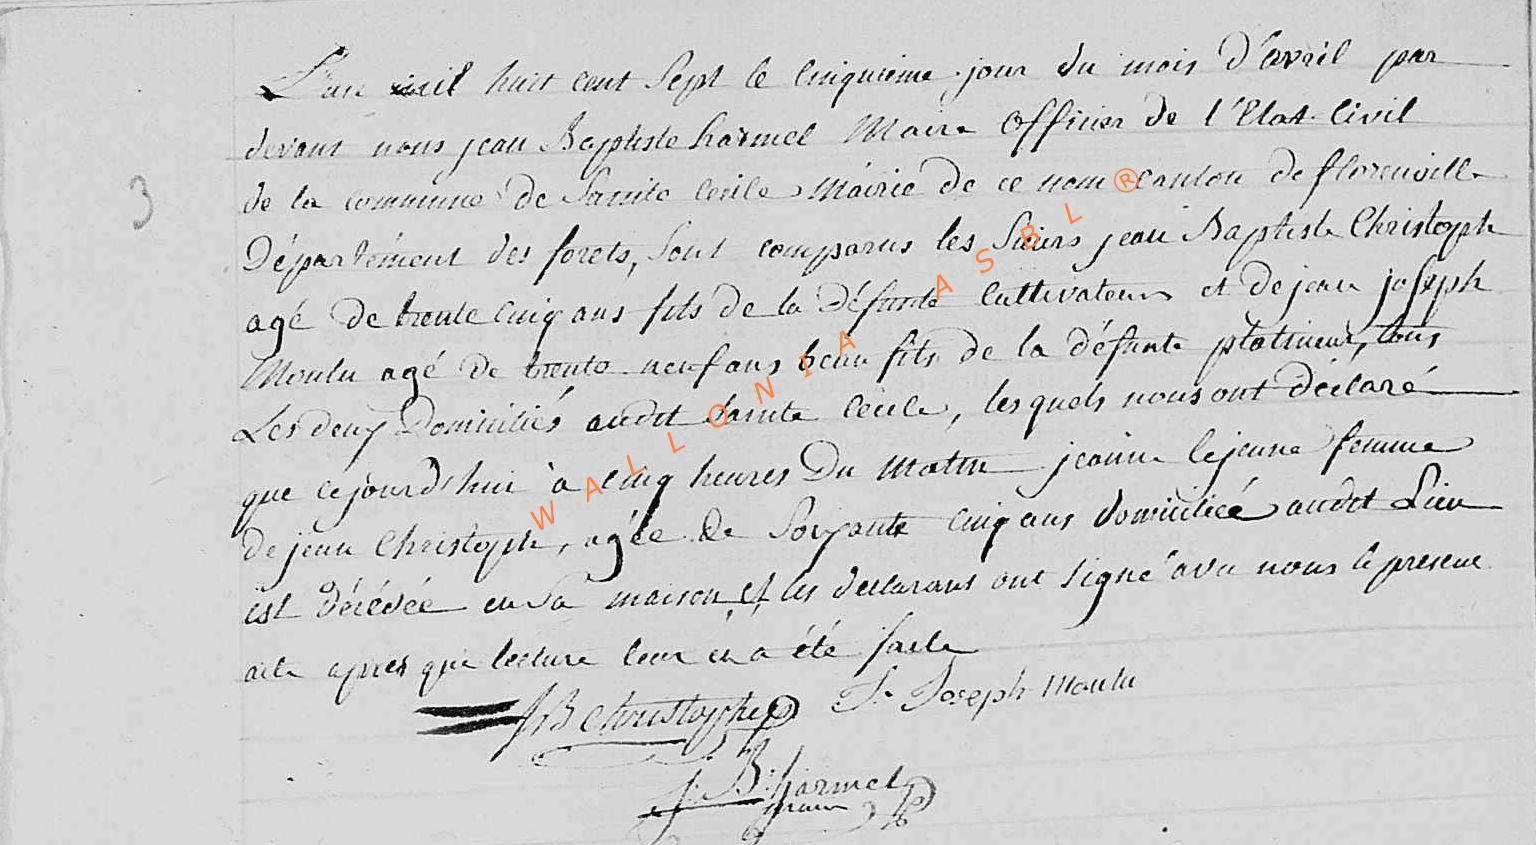 L'an mil huit cent Sept le Cinquieme jour du mois d'avril par
devant nous jean Baptiste harmel Maire Officier de l'Etat Civil
3
de la Commune de Sainte Cecile Mairie de ce nom Canton de florenville
Département des forets, Sont comparus les Sieurs jean Baptiste Christoph
agé de trente cinq ans fils de la défunte Cultivateur et de jean joseph
Moulu agé de trente neuf ans beau fils de la défunte platineur, tous
Les deux Domiciliés audit Sainte Cecile, les quels nous ont déclaré
que cejourd'hui à cinq heures Du Matin jeanne Lejeune femme
de jean Christoph, agée de Soixante cinq ans domiciliée audit Lieu
est Décédée en Sa maison et les declarans ont Signé avec nous le présent
acte après que lecture leur en a été faite
JB Christophe J. Joseph Moulu
J. B. harmel
maire
WALLONIA ASBL ®